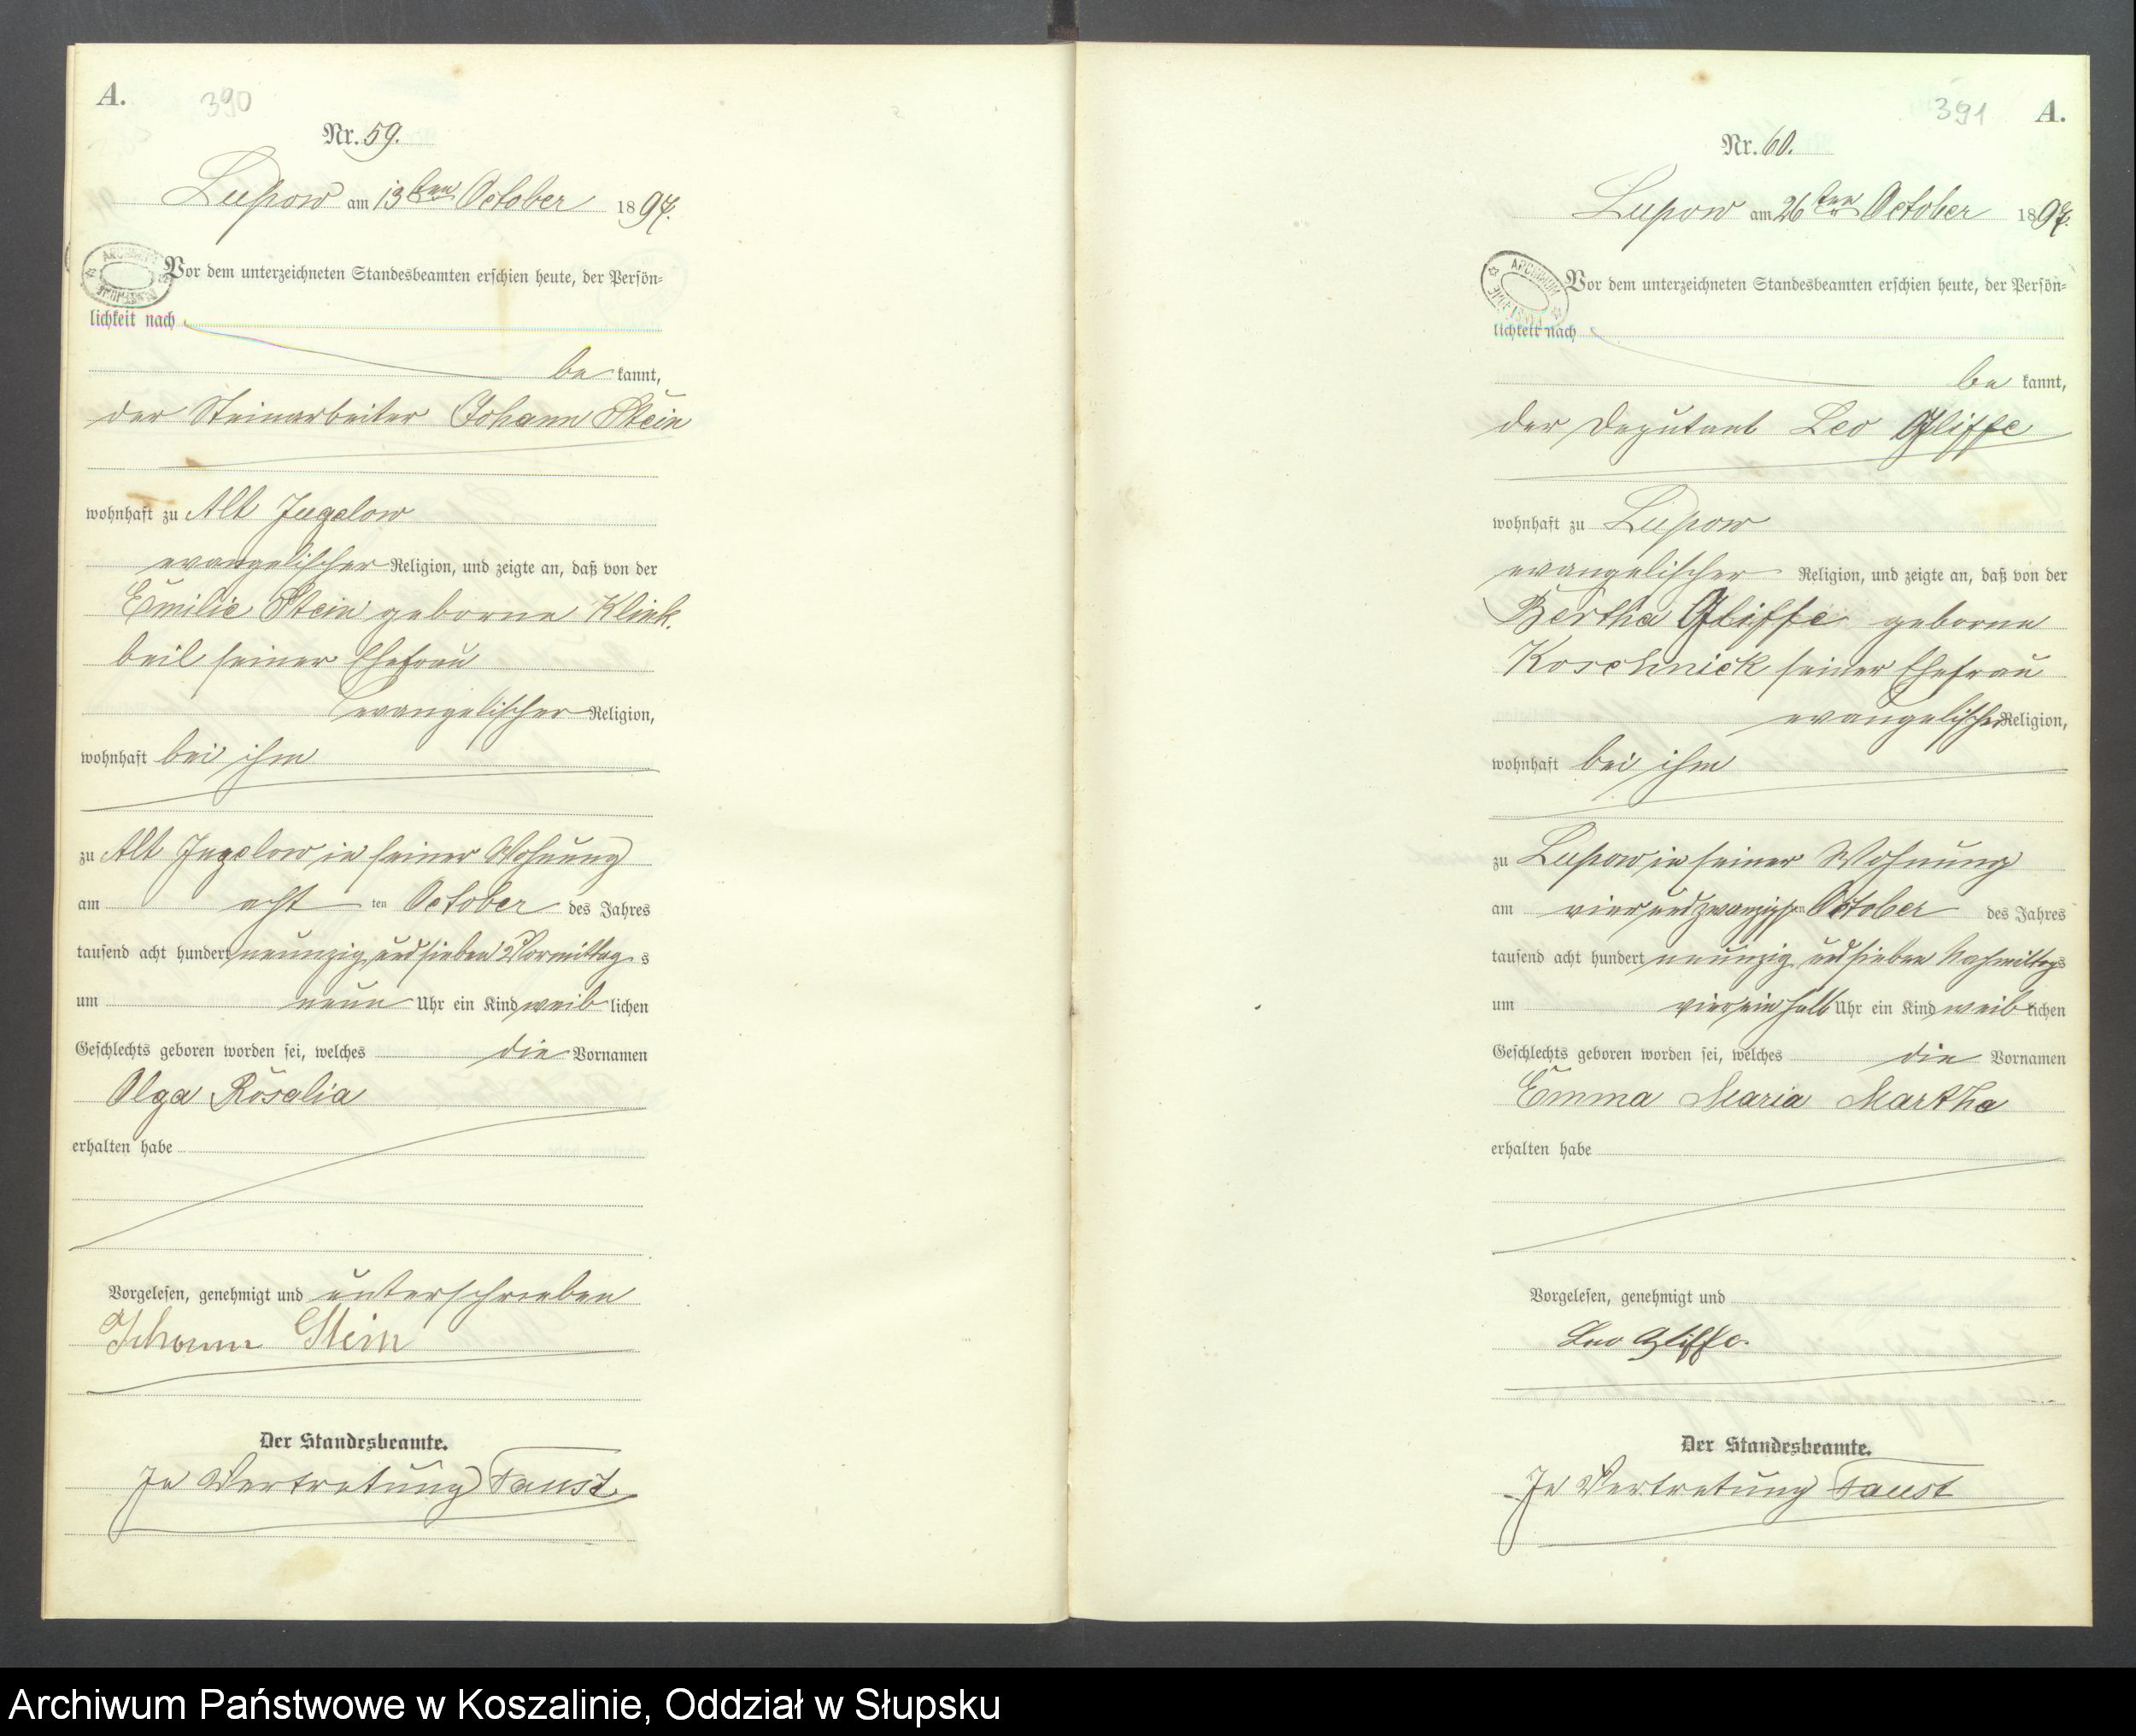 A.
390
Nr. 59.
Lupow am 13ten October 1897.
Vor dem unterzeichneten Standesbeamten erschien heute, der Persön-
lichkeit nach
be kannt,
der Steinarbeiter Johann Stein
wohnhaft zu Alt Jugelow
evangelischer Religion, und zeigte an, daß von der
Emilie Stein geborne Klink-
beil seiner Ehefrau
evangelischer Religion,
wohnhaft bei ihm
zu Alt Jugelow in seiner Wohnung
am acht ten October des Jahres
tausend acht hundert neunzig und sieben Vormittag s
um neun Uhr ein Kind weib lichen
Geschlechts geboren worden sei, welches die Vornamen
Olga Rosalia
erhalten habe
Vorgelesen, genehmigt und unterschrieben
Johann Stein
Der Standesbeamte.
In Vertretung Faust.
391
A.
Nr. 60.
Lupow am 26ten October 1897.
ARCHIWUM
Vor dem unterzeichneten Standesbeamten erschien heute, der Persön-
lichkeit nach
be kannt,
der Deputant Leo Gliffe
wohnhaft zu Lupow
evangelischer Religion, und zeigte an, daß von der
Bertha Gliffe geborne
Koschnick seiner Ehefrau
evangelischer Religion,
wohnhaft bei ihm
zu Lupow in seiner Wohnung
am vier und zwanzigsten October des Jahres
tausend acht hundert neunzig und sieben Nachmittags
um vier ein halb Uhr ein Kind weib lichen
Geschlechts geboren worden sei, welches die Vornamen
Emma Maria Martha
erhalten habe
Vorgelesen, genehmigt und
Leo Gliffe.
Der Standesbeamte.
In Vertretung Faust
Archiwum Państwowe w Koszalinie, Oddział w Słupsku